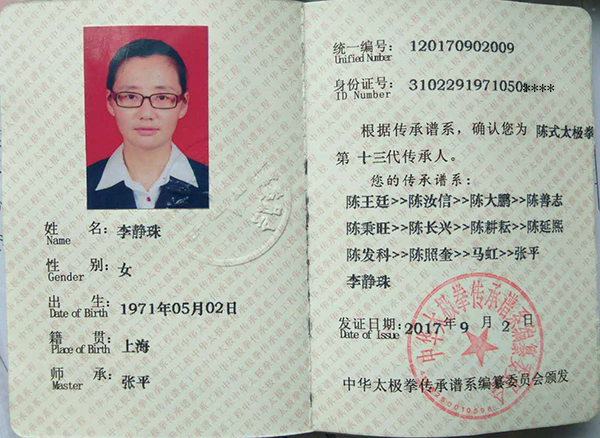 姓 名：李静珠
Name
性 别：女
Gender
出 生：1971年05月02日
Date of Birth
籍 贯：上海
Place of Birth
师 承：张平
Master
统一编号：120170902009
Unified Number
身份证号：3102291971050****
ID Number
根据传承谱系，确认您为 陈式太极拳
第 十三代传承人。
您的传承谱系：
陈王廷>>陈汝信>>陈大鹏>>陈善志
陈秉旺>>陈长兴>>陈耕耘>>陈延熙
陈发科>>陈照奎>>马虹>>张平
李静珠
发证日期：2017年 9 月 2 日
Date of Issue
中华太极拳传承谱系编纂委员会
中华太极拳传承谱系编纂委员会颁发